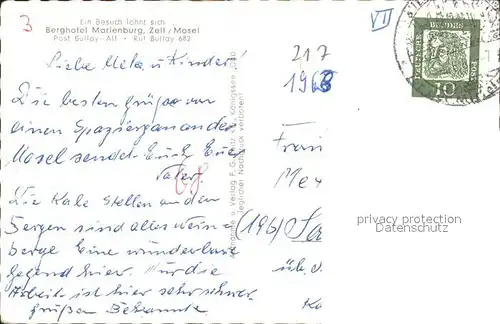 3
Ein Besuch lohnt sich
Berghotel Marienburg, Zell/Mosel
Post Bullay-Alf - Ruf Bullay 682
VII
DEUTSCHE
BUNDESPOST
10
217
1963
Liebe u Kinder!
Die besten grüße vor
einen Spaziergan an der
Mosel sendet Euch Euer
Vater.
Die Kale Stellen an den
Bergen sind alles wein
berge Eine wunderbare
gegend hier. Nur die
Arbeit ist hier sehr schwer
grüßen Bekannte
Aufnahme u. Verlag F. G. Königssee
Jeglicher Nachdruck verboten!
Frau
Me
(196)
üb. d.
privacy protection
Datenschutz